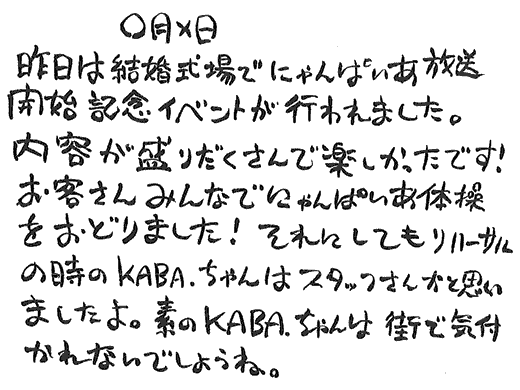 〇月×日
昨日は結婚式場でにゃんぱいあ放送
開始記念イベントが行われました。
内容が盛りだくさんで楽しかったです!
お客さんみんなでにゃんぱいあ体操
をおどりました! それにしてもリハーサル
の時のKABA.ちゃんはスタッフさんかと思い
ましたよ。素のKABA.ちゃんは街で気付
かれないでしょうね。